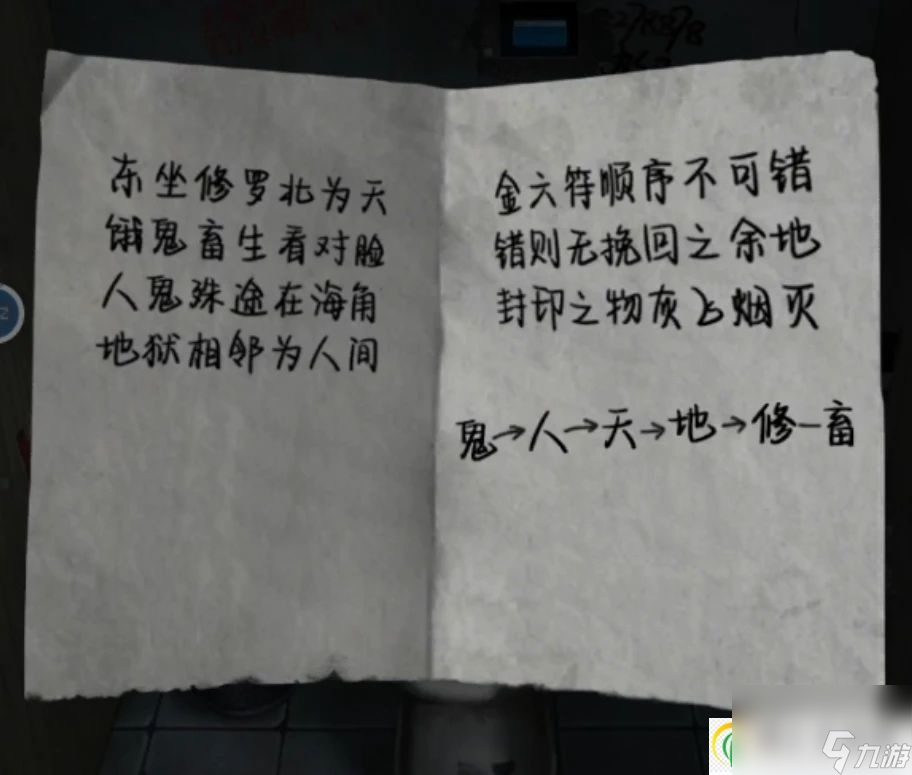 东坐修罗北为天
饿鬼畜生看对脸
人鬼殊途在海角
地狱相邻为人间
金六符顺序不可错
错则无挽回之余地
封印之物灰飞烟灭
鬼→人→天→地→修—畜
九游